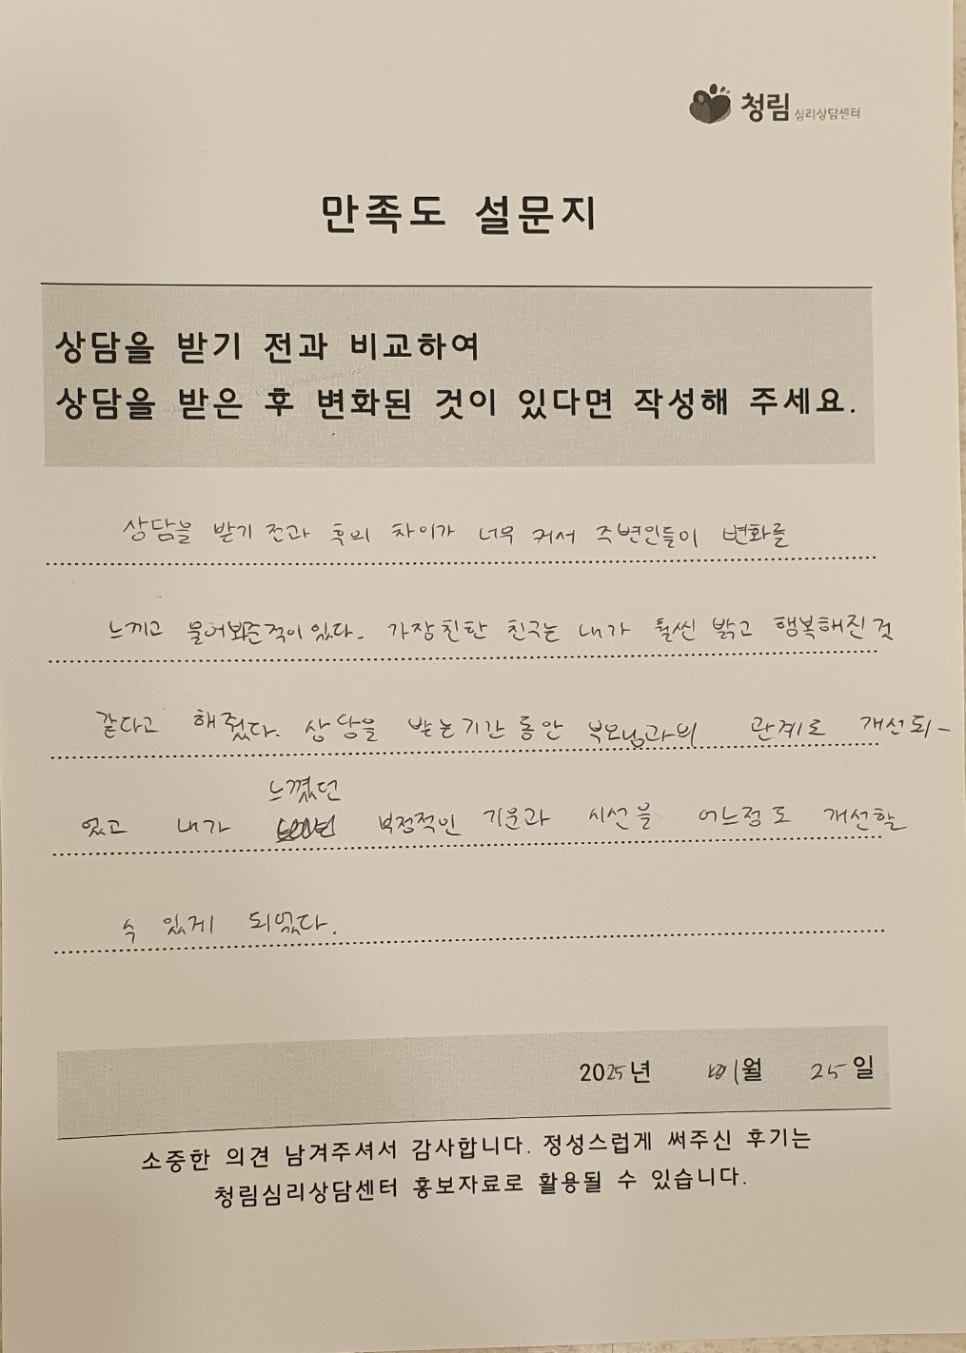 청림 심리상담센터
만족도 설문지
상담을 받기 전과 비교하여
상담을 받은 후 변화된 것이 있다면 작성해 주세요.
상담을 받기 전과 후의 차이가 너무 커서 주변인들이 변화를
느끼고 물어봐준적이 있다. 가장 친한 친구는 내가 훨씬 밝고 행복해진 것
같다고 해줬다. 상담을 받는 기간 동안 부모님과의 관계도 개선되-
었고 내가 느꼈던 부정적인 기운과 시선을 어느정도 개선할
수 있게 되었다.
2025년 1월 25일
소중한 의견 남겨주셔서 감사합니다. 정성스럽게 써주신 후기는
청림심리상담센터 홍보자료로 활용될 수 있습니다.